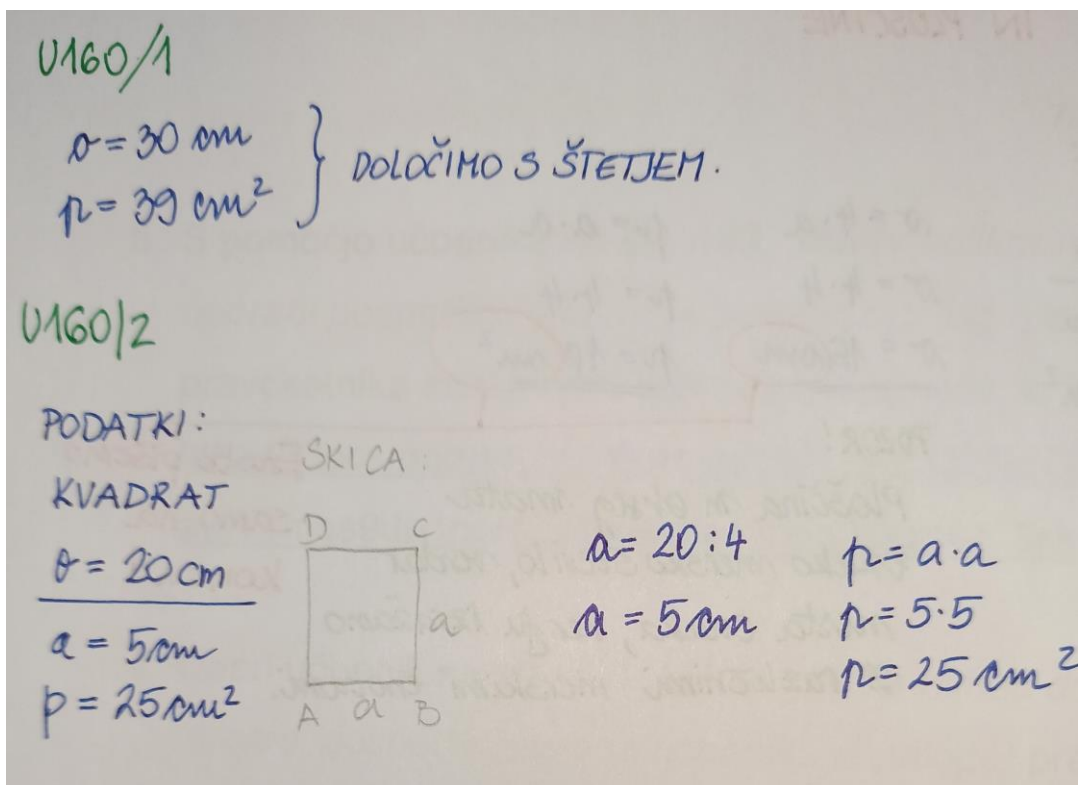 U160/1
o = 30 cm
p = 39 cm²
} DOLOČIMO S ŠTETJEM.
U160/2
PODATKI:
KVADRAT
o = 20 cm
a = 5 cm
p = 25 cm²
SKICA:
D C
a
A a B
a = 20 : 4
a = 5 cm
p = a · a
p = 5 · 5
p = 25 cm²